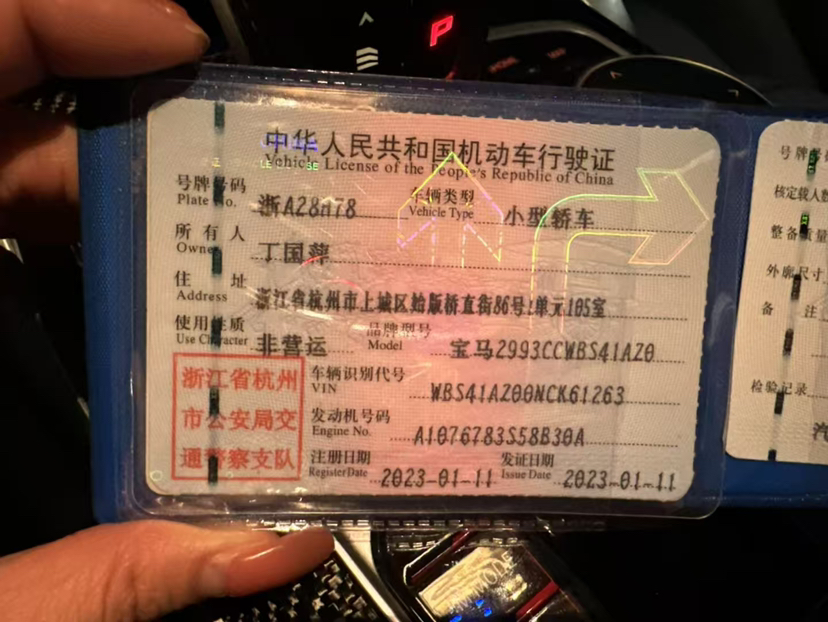 P
中华人民共和国机动车行驶证
Vehicle License of the People's Republic of China
号牌号码 Plate No. 浙A28n78 车辆类型 Vehicle Type 小型轿车
所有人 Owner 丁国萍
住址 Address 浙江省杭州市上城区始版桥直街86号1单元105室
使用性质 Use Character 非营运 品牌型号 Model 宝马2993CCWBS41AZ0
浙江省杭州
市公安局交
通警察支队
车辆识别代号 VIN WBS41AZ00NCK61263
发动机号码 Engine No. A1076783S58B30A
注册日期 Register Date 2023-01-11 发证日期 Issue Date 2023-01-11
号牌号
核定载人数
整备质量
外廓尺寸
备注
检验记录
汽